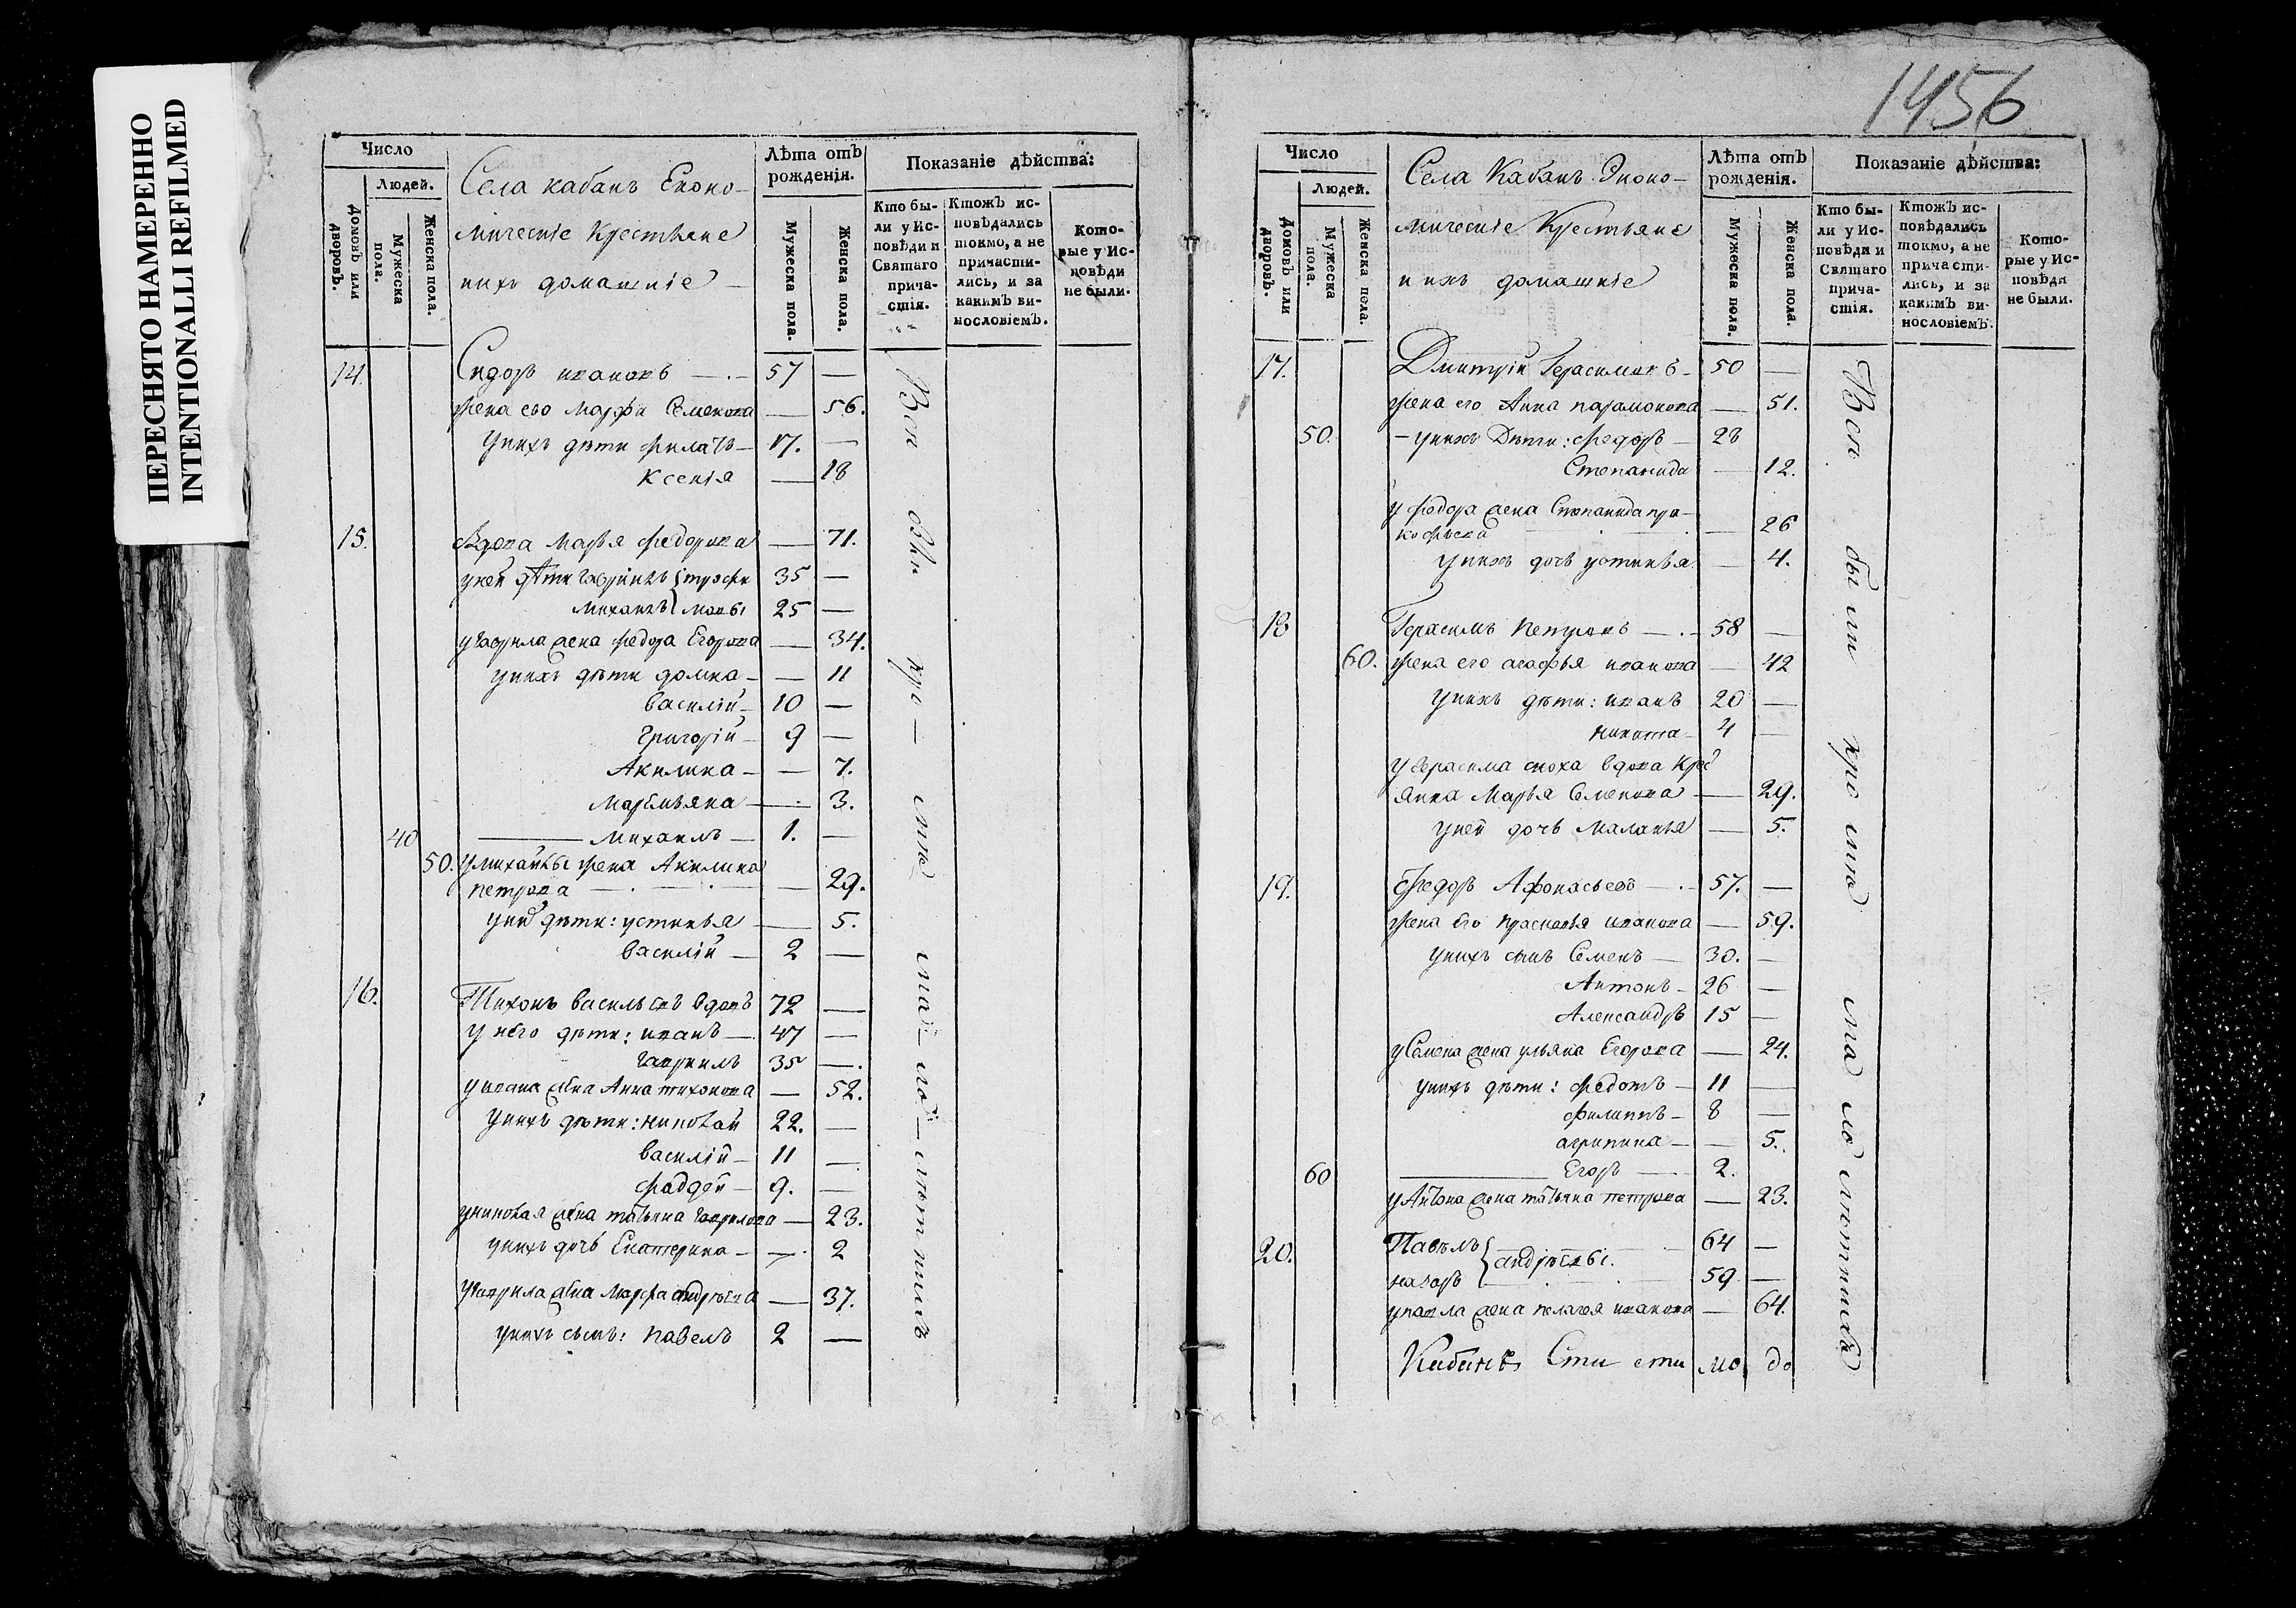 ПЕРЕСНЯТО НАМЕРЕННО
INTENTIONALLI REFILMED
Число
Людей.
Домовъ или дворовъ.
Мужеска пола.
Женска пола.
Села кабанъ Еконо-
мическіе крестьяне
ихъ домашніе
Лѣта отъ рожденія.
Мужеска пола.
Женска пола.
Показаніе дѣйства:
Кто бы-
ли у Ис-
повѣди и
Святаго
прича-
стія.
Ктожъ ис-
повѣдались
токмо, а не
причасти-
лись, и за
какимъ ви-
нословіемъ.
Кото-
рые у Ис-
повѣди
не были.
14. Сидоръ ивановъ — 57 —
жена ево марфа Семенова — 56.
унихъ дѣти филатъ — 17. —
Ксенія — 18
15. вдова марья федорова — 71.
уней дѣти гаврилъ трофи 35 —
михаилъ мовы 25 —
угаврила жена федора Егорова — 34.
унихъ дѣти домна — 11
василій — 10 —
григорій — 9 —
Акилина — 7.
маремьяна — 3.
40 михаилъ — 1. —
50. умихайлы жена Акилина
петрова — 29.
унихъ дѣти: устинья — 5.
василій — 2 —
16. Тихонъ васильевъ вдовъ 72 —
у него дѣти: иванъ — 47 —
гаврилъ 35 —
уивана жена Анна тихонова — 52.
унихъ дѣти: николай 22. —
василій — 11 —
фадей — 9. —
униколая жена татьяна гаврилова — 23.
унихъ дочь Екатерина — 2
угаврила жена марфа андрѣева — 37.
унихъ сынъ: павелъ 2 —
1456
Число
Людей.
Домовъ или дворовъ.
Мужеска пола.
Женска пола.
Села Кабанъ Эконо-
мическіе Крестьяне
ихъ домашніе
Лѣта отъ рожденія.
Мужеска пола.
Женска пола.
Показаніе дѣйства:
Кто бы-
ли у Ис-
повѣди и
Святаго
прича-
стія.
Ктожъ ис-
повѣдались
токмо, а не
причасти-
лись, и за
какимъ ви-
нословіемъ.
Кото-
рые у Ис-
повѣди
не были.
17. Дмитрій Герасимовъ — 50 —
жена его Анна парамонова — 51.
50. — унихъ Дѣти: федоръ — 28
Степанида — 12.
у федора жена Степанида про-
кофьева — 26
унихъ дочь устинья — 4.
18 Герасимъ петровъ — 58 —
60. жена его агафья иванова — 42
унихъ дѣти: иванъ 20 —
никита — 4 —
угерасима сноха вдова
Марья Семенова — 29.
уней дочь маланья — 5.
19. Федоръ Афонасьевъ — 57. —
жена Его прасковья иванова — 59.
унихъ сынъ Семенъ — 30. —
Антонъ — 26 —
Александръ 15 —
уСемена жена ульяна Егорова — 24.
унихъ дѣти: федотъ — 11 —
филиппъ — 8 —
агрипина — 5.
60 Егоръ — 2.
уАнтона жена татьяна петрова — 23.
20. Павелъ андрѣевы. 64 —
назаръ 59 —
упавла жена пелагея иванова — 64.
Вси были